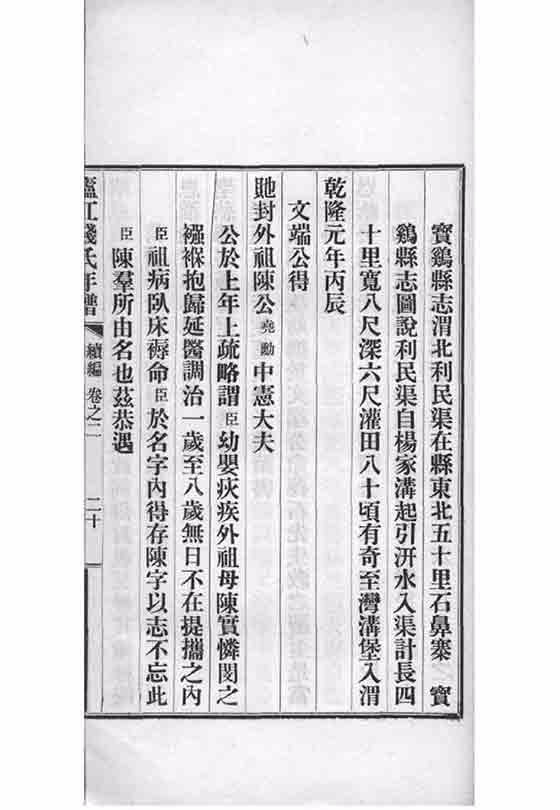 寶鷄縣志渭北利民渠在縣東北五十里石鼻寨 寶
鷄縣志圖說利民渠自楊家溝起引汧水入渠計長四
十里寬八尺深六尺灌田八十頃有奇至灣溝堡入渭
乾隆元年丙辰
文端公得
貤封外祖陳公堯勳中憲大夫
公於上年上疏略謂臣幼嬰疢疾外祖母陳實憐閔之
襁褓抱歸延醫調治一歲至八歲無日不在提攜之內
臣祖病臥床褥命臣於名字內得存陳字以志不忘此
臣陳羣所由名也茲恭遇
廬江錢氏年譜 續編 卷之二 二十